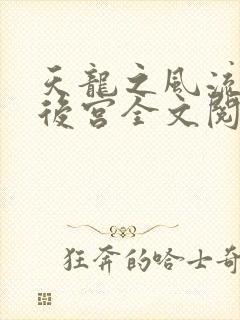 天龍之風流
後宮全文閱
狂奔的哈士奇